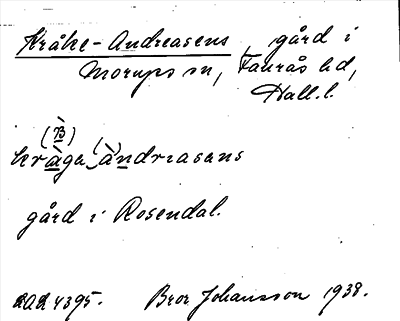 Kråke-Andreasens, gård i
Morups sn, Faurås hd,
Hall. l.
(B)
kràga(‿)àndriasans
gård i Rosendal.
DAL 4395. Bror Johansson 1938.